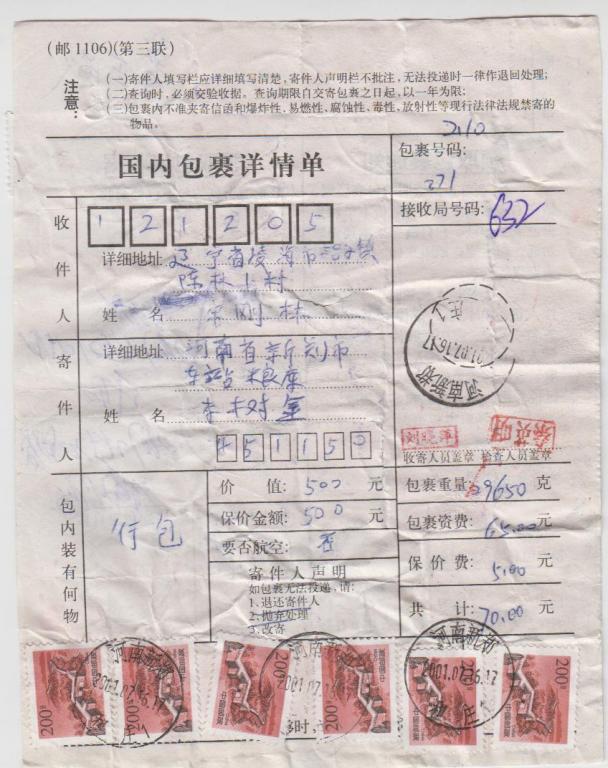 (邮1106)(第三联)
注意:
(一)寄件人填写栏应详细填写清楚，寄件人声明栏不批注，无法投递时一律作退回处理;
(二)查询时，必须交验收据。查询期限自交寄包裹之日起，以一年为限;
(三)包裹内不准夹寄信函和爆炸性、易燃性、腐蚀性、毒性、放射性等现行法律法规禁寄的
物品。
国内包裹详情单
包裹号码:
271
接收局号码: 632
收件人
121205
详细地址 辽宁省凌海市
村
姓名 刚林
寄件人
详细地址 河南省新郑市
车站粮库
姓名
451150
收寄人员盖章 检查人员盖章
包内装有何物
行包
价值: 500 元
保价金额: 500 元
要否航空: 否
寄件人声明
如包裹无法投递，请:
1、退还寄件人
2、抛弃处理
3、改寄
包裹重量: 29650 克
包裹资费: 65.00 元
保价费: 5.00 元
共计: 70.00 元
河南新郑
2001.07.16.17
河南新郑
2001.07.16.17
河南新郑
2001.07.16.17
200
中国邮政
200
中国邮政
200
中国邮政
200
中国邮政
200
中国邮政
200
中国邮政